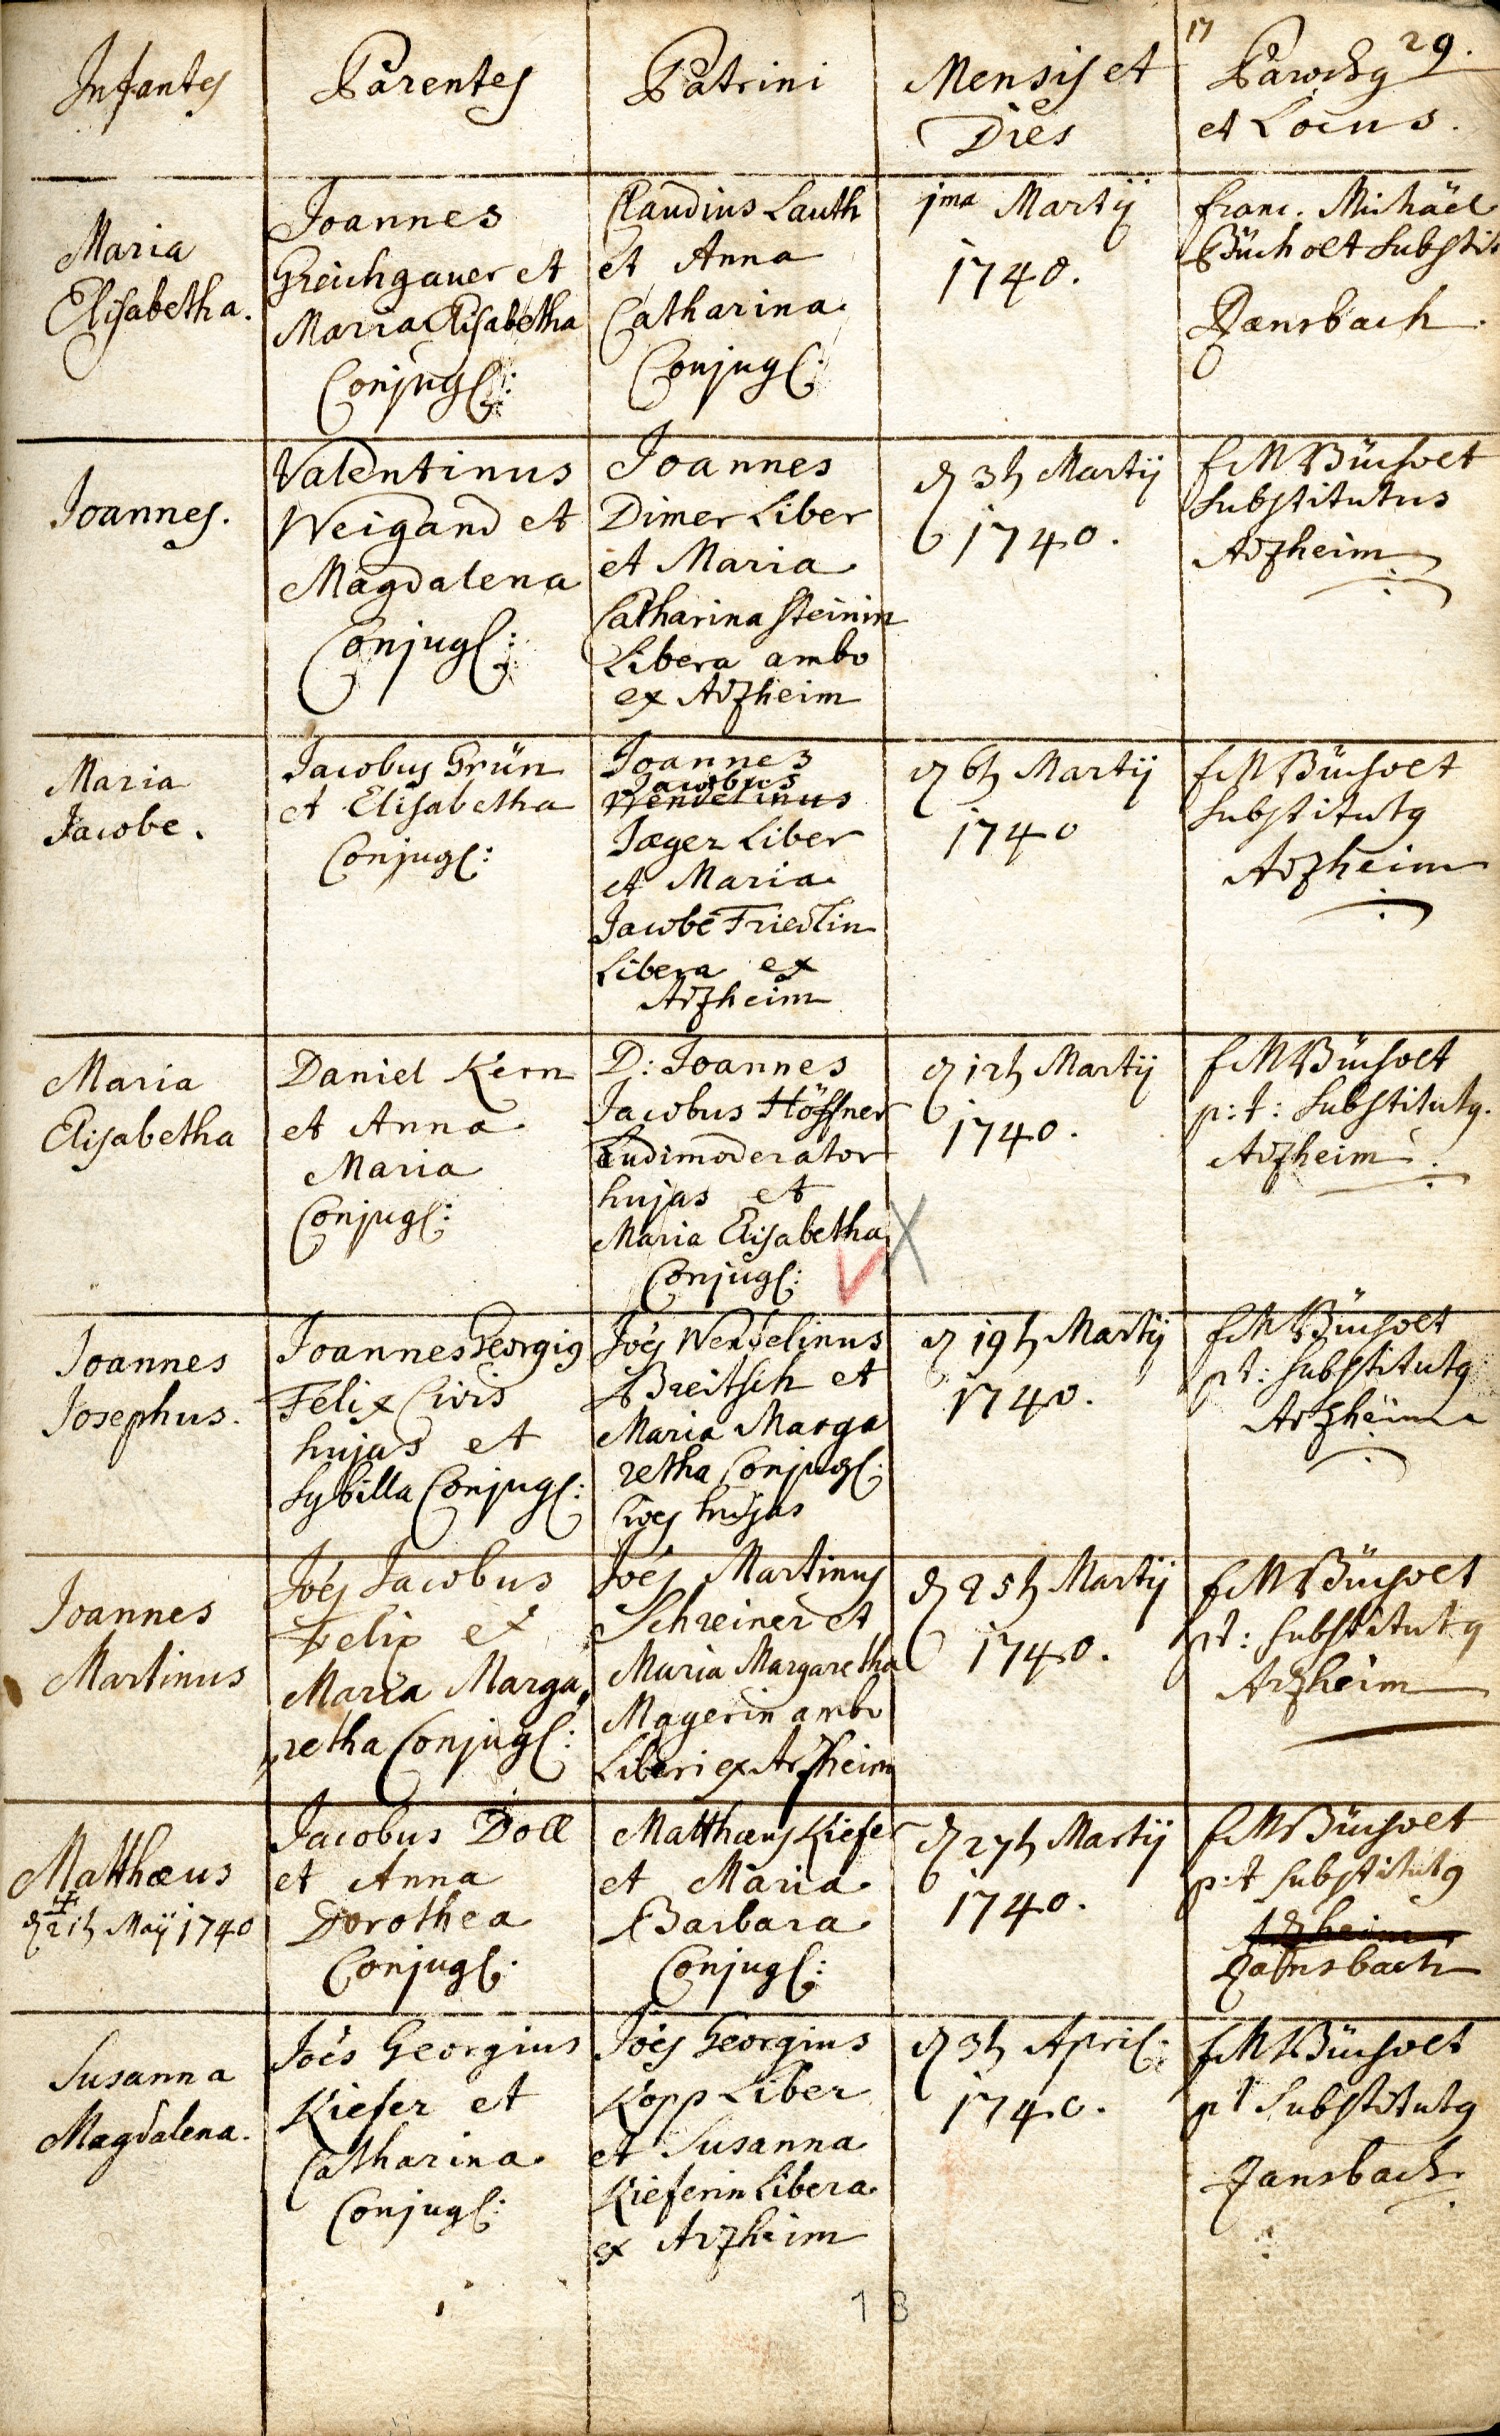 17
29.
Infantes
Parentes
Patrini
Mensis et
Dies
Parochg
et Locus.
Maria
Elisabetha.
Joannes
Greichgauer et
Maria Elisabetha
Conjug:
Claudius Lauth
et Anna
Catharina
Conjug:
1ma Martij
1740.
Franc. Michäel
Bücholt Substit
Ransbach.
Joannes.
Valentinus
Weigand et
Magdalena
Conjug:
Joannes
Dimer Liber
et Maria
Catharina Steinin
Libera ambo
ex Arzheim
d 3t Martij
1740.
FM Bücholt
Substitutus
Arzheim
Maria
Jacobe.
Jacobus Grün
et Elisabetha
Conjug:
Joannes
Jacobus
Wendelinus
Jæger Liber
et Maria
Jacobe Friedlin
Libera ex
Arzheim
d 6t Martij
1740
FM Bücholt
Substitutg
Arzheim
Maria
Elisabetha
Daniel Kern
et Anna
Maria
Conjug:
D: Joannes
Jacobus Höffner
Ludimoderator
hujas et
Maria Elisabetha
Conjug:
d 12t Martij
1740.
FM Bücholt
p:t: Substitutg.
Arzheim
Joannes
Josephus.
Joannes Georgig
Felix Civis
hujas et
Sybilla Conjug:
Joes Wendelinus
Breitsch et
Maria Marga
retha Conjug:
Cives hujas
d 19t Martij
1740.
FM Bücholt
pt: Substitutg
Arzheim
Joannes
Martinus
Joes Jacobus
Felix et
Maria Marga„
„retha Conjug:
Joes Martinus
Schreiner et
Maria Margaretha
Magerin ambo
Liberi ex Arzheim
d 25t Martij
1740.
FM Bücholt
pt: Substitutg
Arzheim
Matthæus
+
d 21t Maij 1740
Jacobus Doll
et Anna
Dorothea
Conjug:
Matthæus Kiefer
et Maria
Barbara
Conjug:
d 27t Martij
1740.
FM Bücholt
p:t Substitutg
Arzheim
Ransbach
Susanna
Magdalena.
Joes Georgius
Kiefer et
Catharina
Conjug:
Joes Georgius
Kopp Liber
et Susanna
Kieferin Libera
ex Arzheim
d 3t April:
1740.
FM Bücholt
pt Substitutg
Ransbach
18